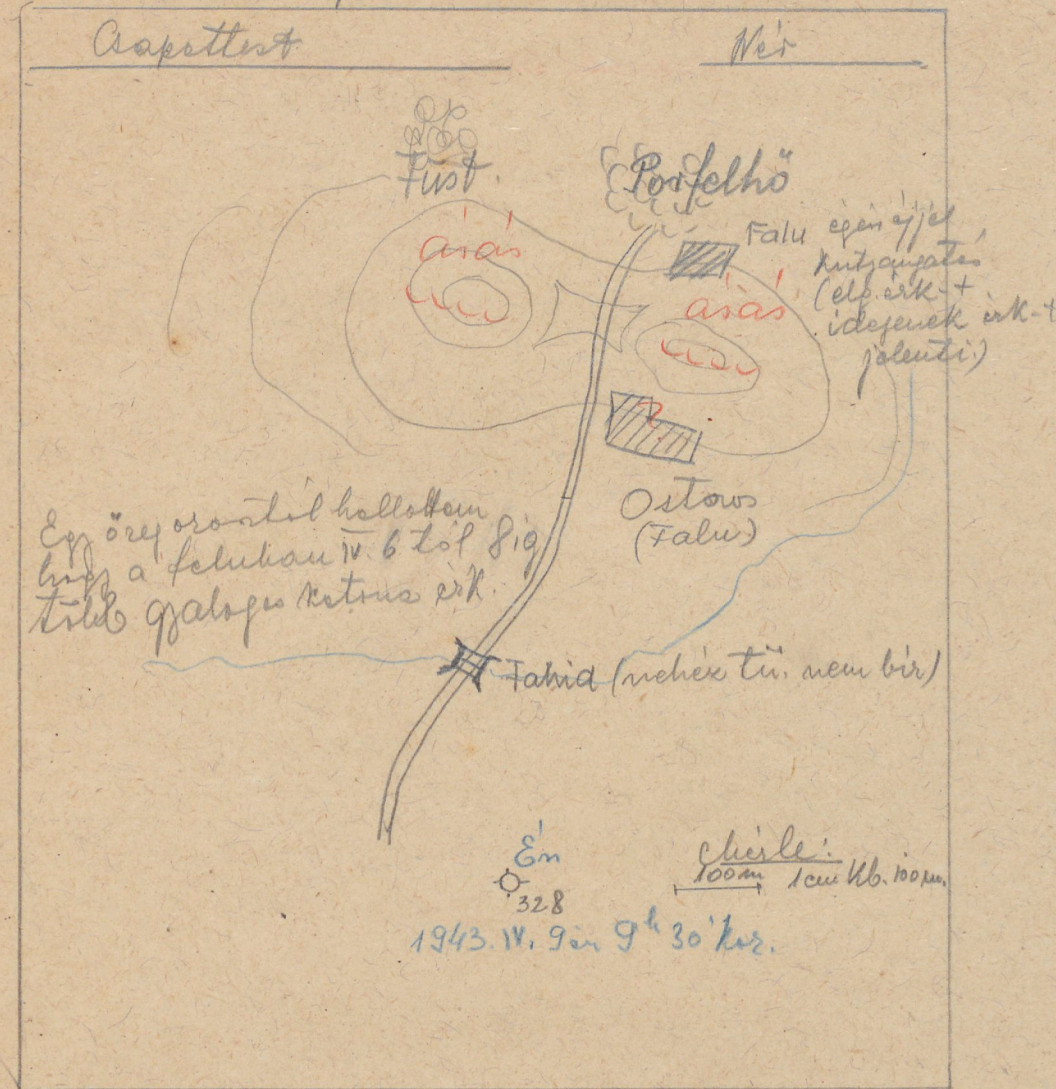 Csapattest
Név
Füst.
Porfelhő
ásás
Falu égén éjjel
kutyaugatás
(elg. érk-t
idegenek érk-t
jelenti.)
ásás
?
Ostoros
(Falu)
Egy öreg orostól hallottam
hogy a faluban IV. 6 tól 8 ig
több gyalogos katona érk.
Fahid (nehéz tü. nem bír)
Én
328
Mérle:
100m 1cm Kb. 100 m.
1943. IV. 9 én 9h 30' kor.